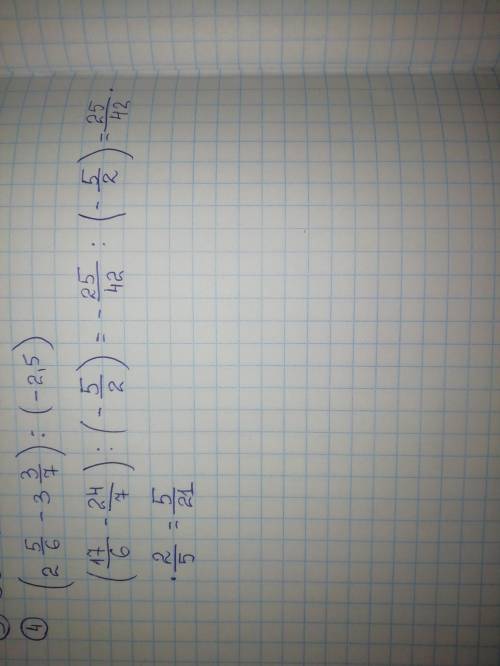 ④ (2 5/6 - 3 3/7) : (-2,5)
(17/6 - 24/7) : (-5/2) = -25/42 : (-5/2) = 25/42 ·
· 2/5 = 5/21